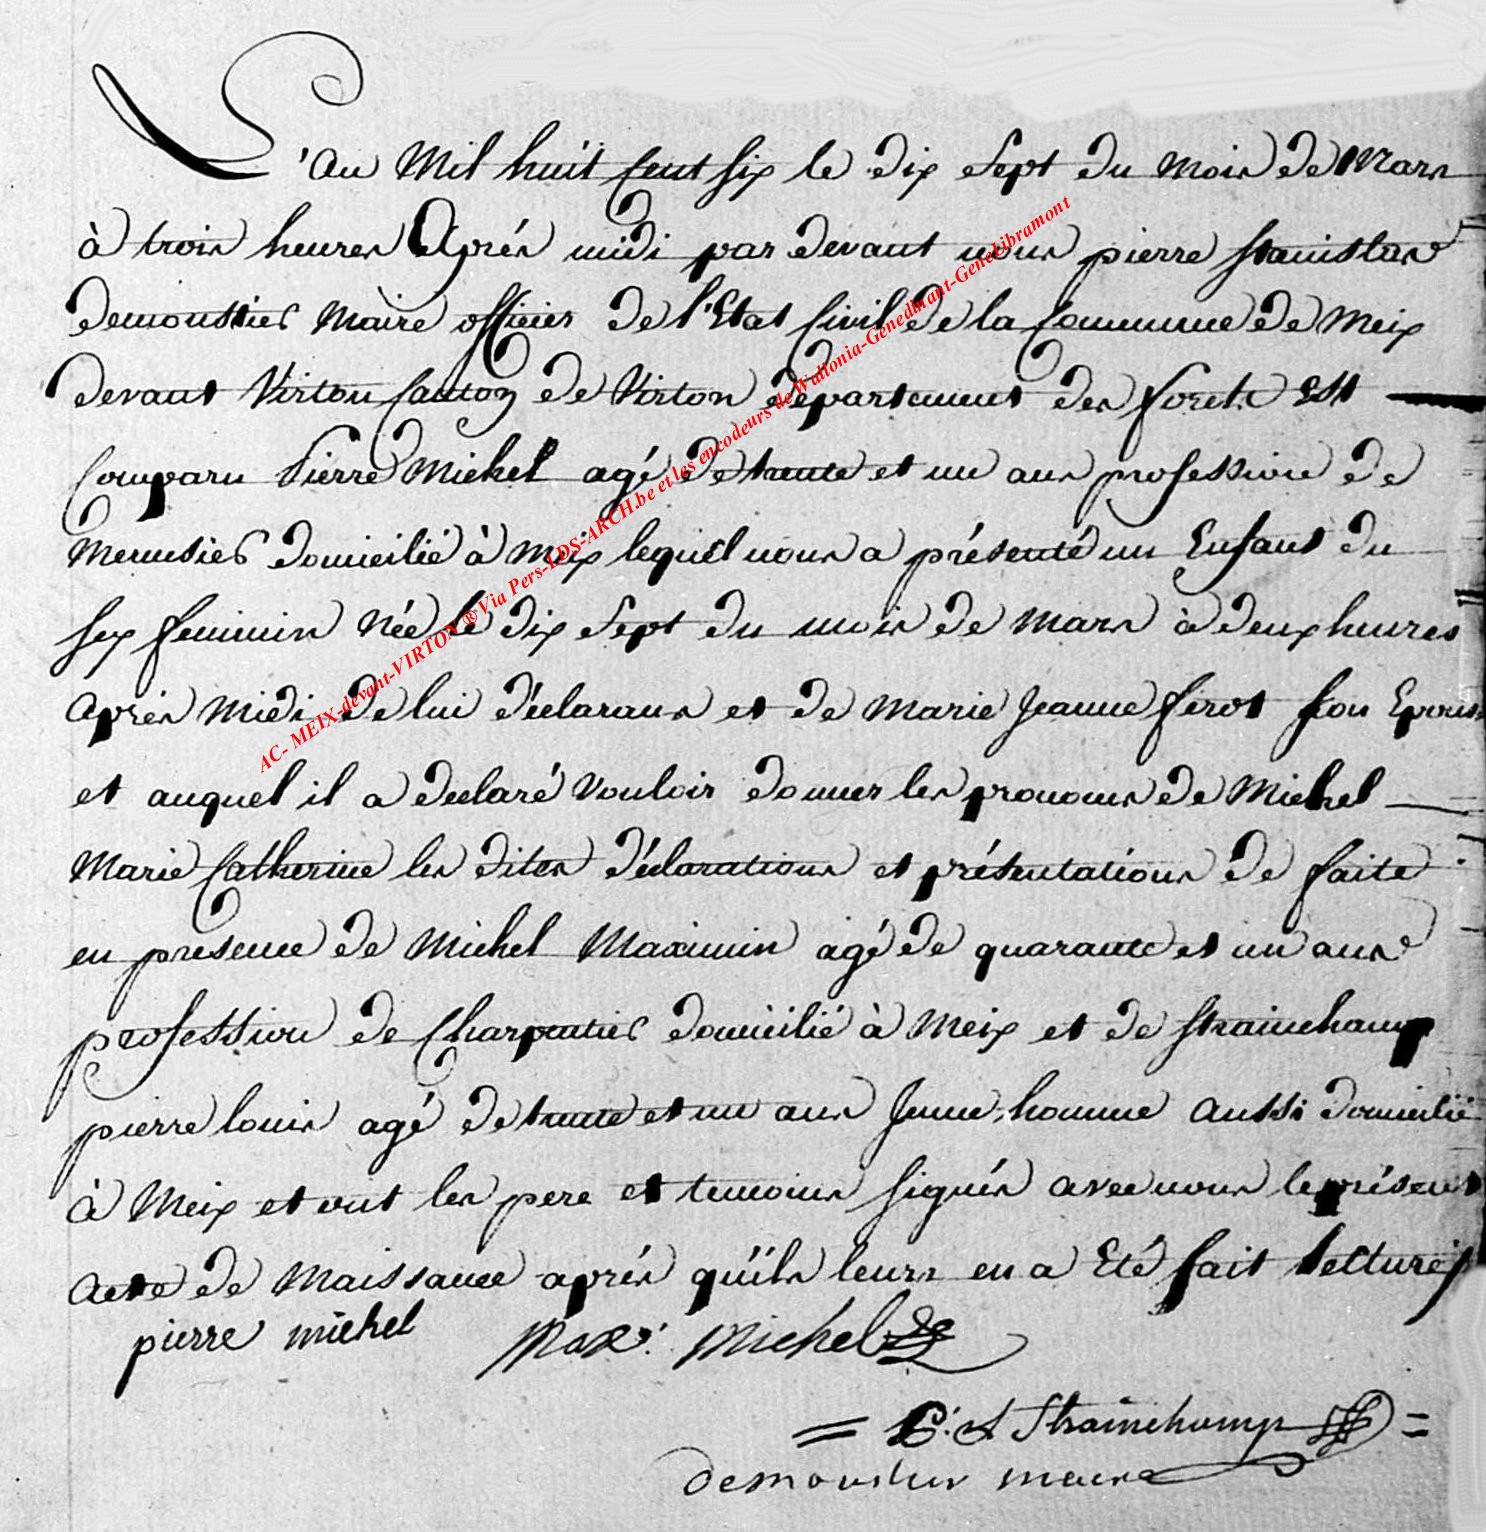 L'an Mil huit Cent six le dix sept du mois de Mars
à trois heures Après midi par devant nous pierre stanislas
demoustier Maire officier de l'Etat Civil de la Commune de Meix
devant Virton Canton de Virton département des forets Est
Comparu Pierre Michel agé de trente et un ans profession de
Menuisier domicilié à Meix lequel nous a présenté un Enfant du
sex feminin Née le dix sept du mois de Mars à deux heures
après midi de lui déclarans et de Marie Jeanne firot son Epouse
et auquel il a declaré vouloir donner les pronoms de Michel
Marie Catherine les dites déclarations et présentations de faite
en presence de Michel Maximin agé de quarante et un ans
profession de Charpentier domicilié à Meix et de strainchamp
pierre louis agé de trente et un ans Jeune homme aussi domicilié
à Meix et ont les pere et temoins signés avec nous le présent
acte de Naissance après qu'ils leurs en a Eté fait lecture
pierre michel Max. Michel
= P. L Strainchamp =
demoustier maire
AC- MEIX-devant-VIRTON ® Via Pers-LDS-ARCH.be et les encodeurs de Wallonia-Genedinant-Genelibramont